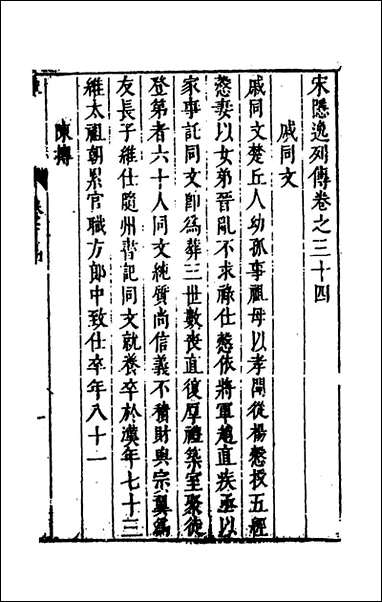 宋隱逸列傳卷之三十四
戚同文
戚同文楚丘人幼孤事祖母以孝聞從楊慤授五經
慤妻以女弟晉亂不求祿仕慤依將軍趙直疾亟以
家事託同文即為葬三世數喪直復厚禮築室聚徒
登第者六十人同文純質尚信義不積財與宗翼為
友長子維仕隨州書記同文就養卒於漢年七十三
維太祖朝累官職方郎中致仕卒年八十一
陳摶